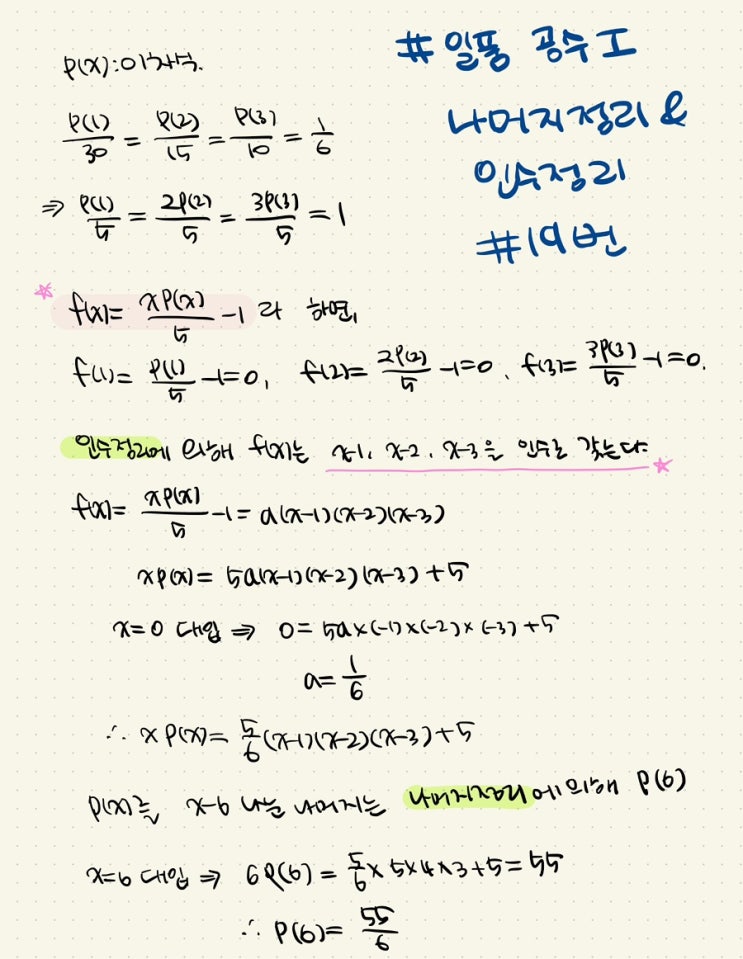 # 일품 공수 I
나머지정리 &
인수정리
#19번
P(x):이차식.
P(1)/30 = P(2)/15 = P(3)/10 = 1/6
⇒ P(1)/5 = 2P(2)/5 = 3P(3)/5 = 1
☆ f(x)= xP(x)/5 -1 라 하면,
f(1)= P(1)/5 -1=0, f(2)= 2P(2)/5 -1=0, f(3)= 3P(3)/5 -1=0.
인수정리에 의해 f(x)는 x-1, x-2, x-3을 인수로 갖는다. ☆
f(x)= xP(x)/5 -1= a(x-1)(x-2)(x-3)
xP(x)= 5a(x-1)(x-2)(x-3)+5
x=0 대입 ⇒ 0= 5a×(-1)×(-2)×(-3)+5
a= 1/6
∴ xP(x)= 5/6 (x-1)(x-2)(x-3)+5
P(x)를 x-6 나눈 나머지는 나머지정리에 의해 P(6)
x=6 대입 ⇒ 6P(6)= 5/6 × 5×4×3+5=55
∴ P(6)= 55/6